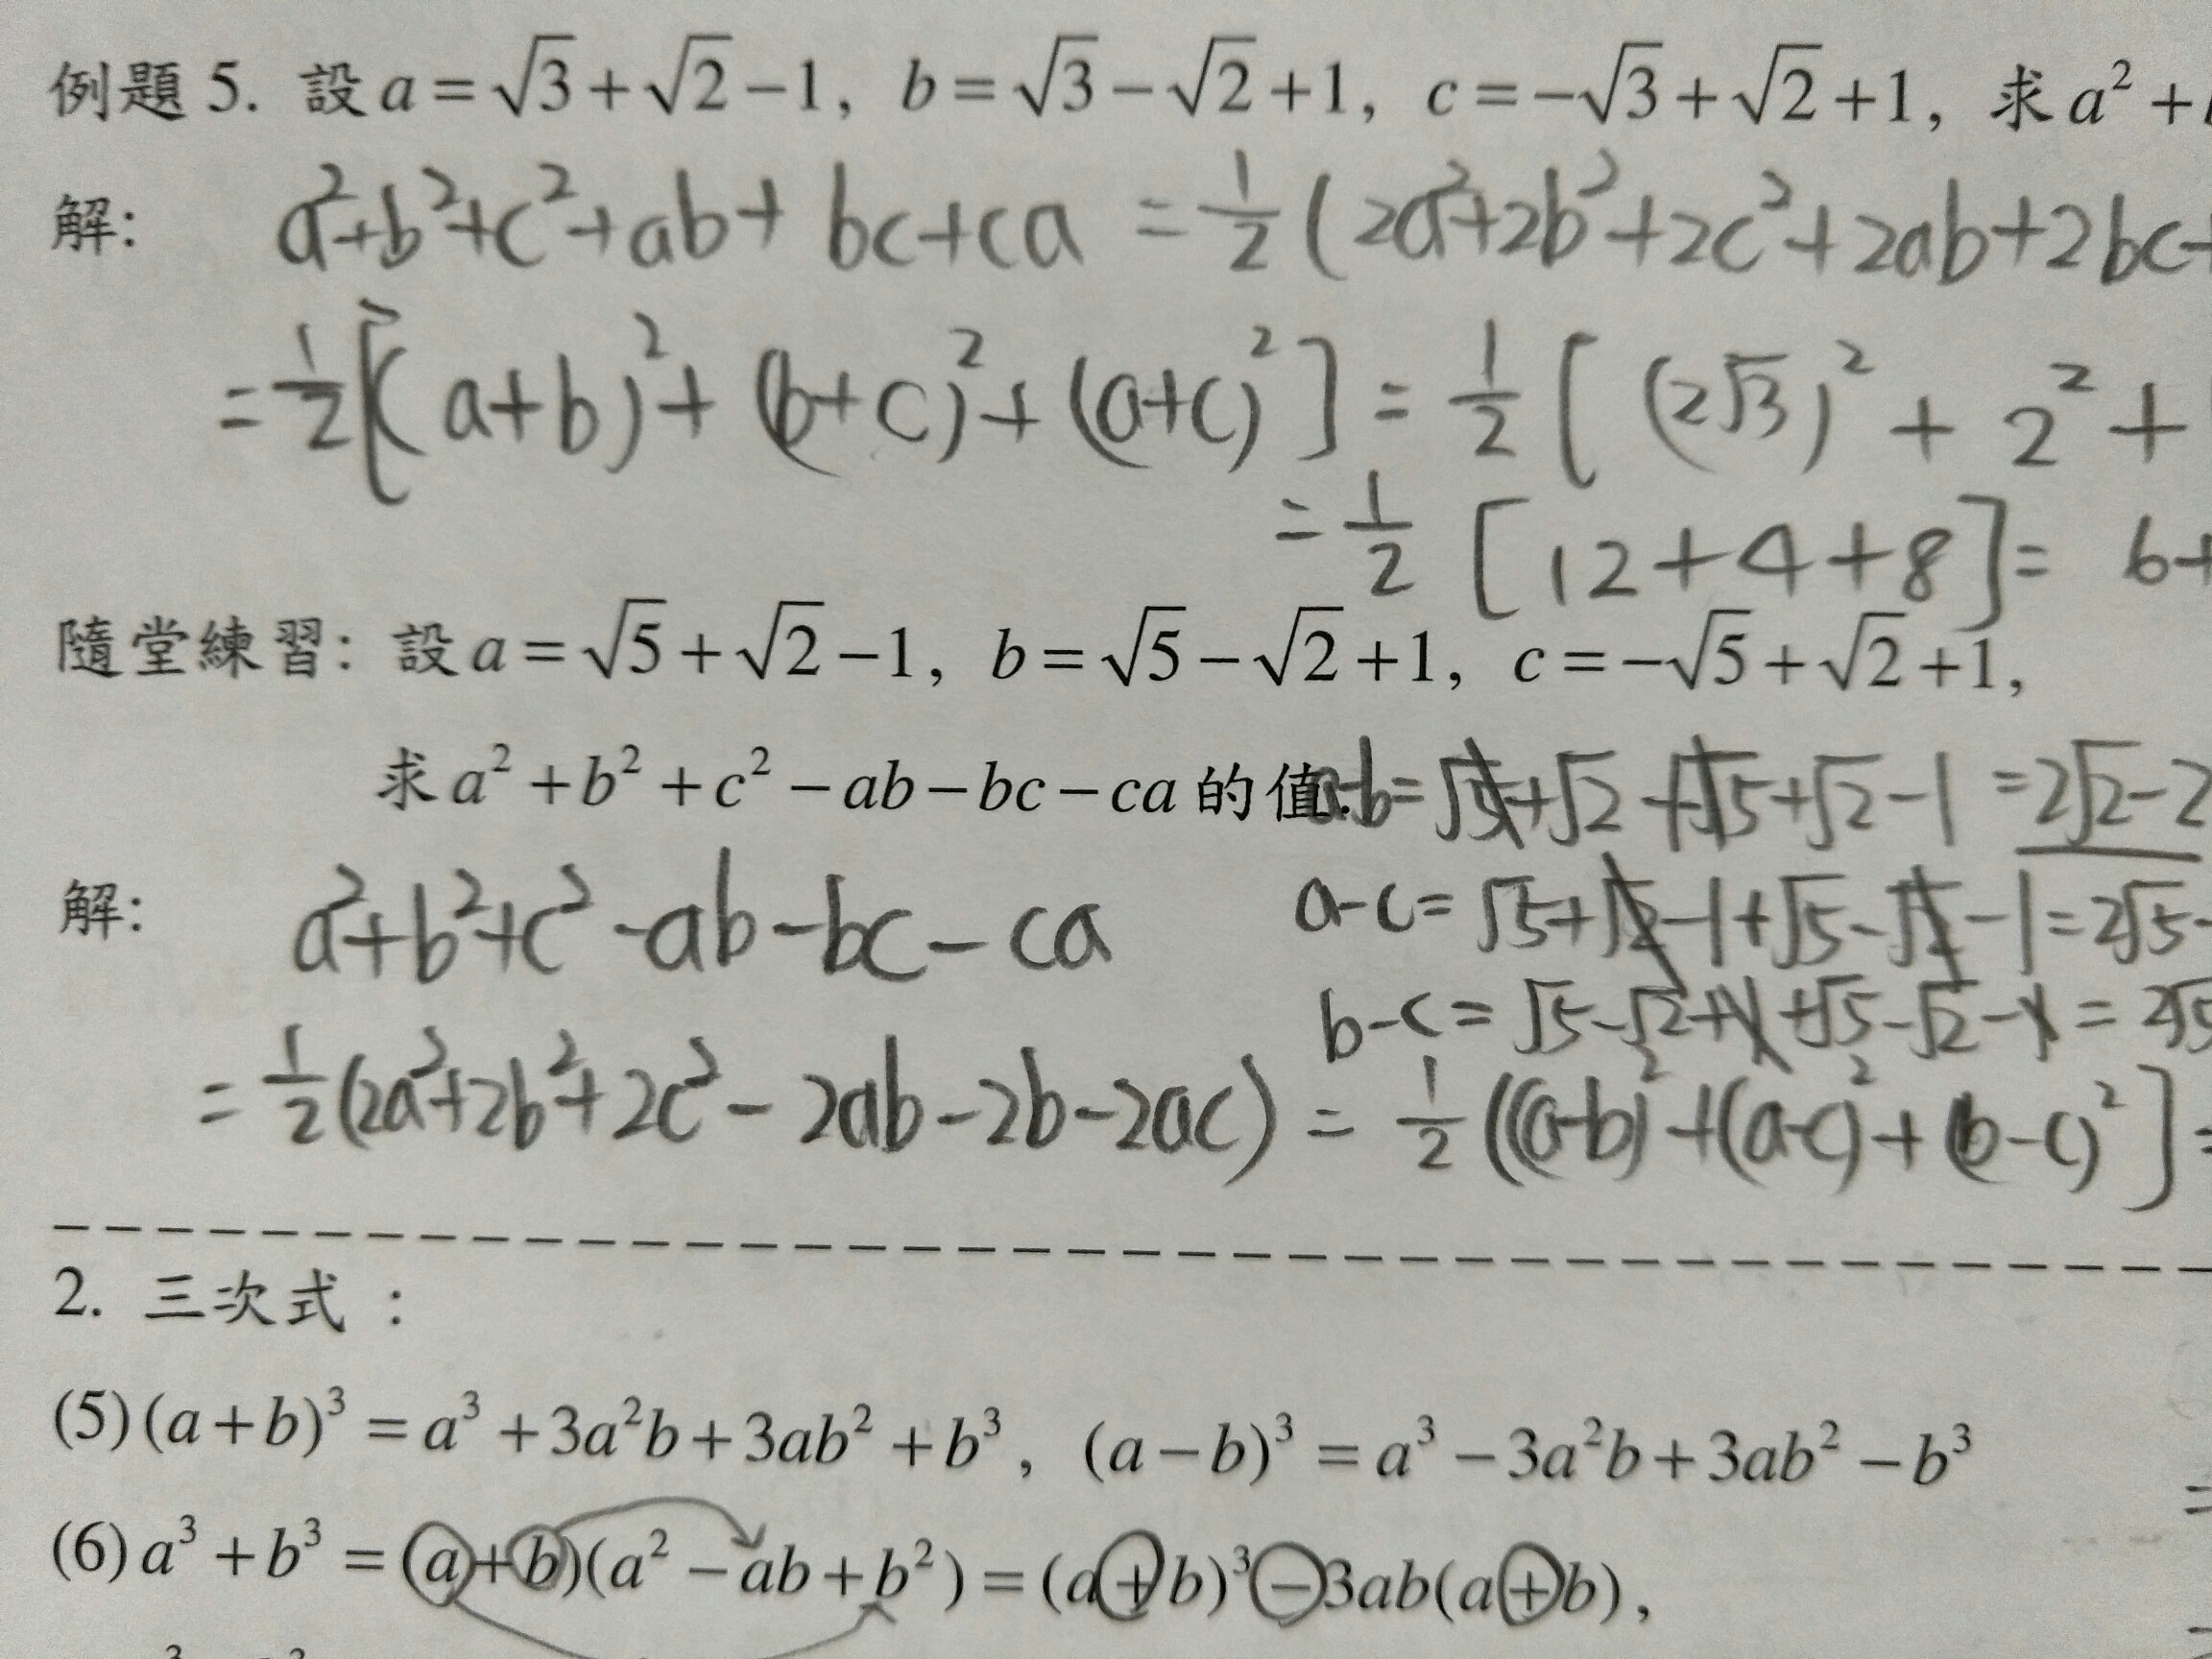 例題 5. 設 a = √3 + √2 − 1, b = √3 − √2 + 1, c = −√3 + √2 + 1, 求 a² +
解: a²+b²+c²+ab+bc+ca = 1/2 (2a²+2b²+2c²+2ab+2bc
= 1/2 [(a+b)² + (b+c)² + (a+c)²] = 1/2 [(2√3)² + 2² +
= 1/2 [12+4+8] = 6+
隨堂練習: 設 a = √5 + √2 − 1, b = √5 − √2 + 1, c = −√5 + √2 + 1,
求 a² + b² + c² − ab − bc − ca 的值.
a-b = √5+√2-1-√5+√2-1 = 2√2-2
解: a²+b²+c²-ab-bc-ca
a-c = √5+√2-1+√5-√2-1 = 2√5-
b-c = √5-√2+1+√5-√2-1 = 2√5
= 1/2 (2a²+2b²+2c²-2ab-2b-2ac) = 1/2 ((a-b)²+(a-c)²+(b-c)²] =
2. 三次式 :
(5) (a+b)³ = a³ + 3a²b + 3ab² + b³, (a−b)³ = a³ − 3a²b + 3ab² − b³
(6) a³ + b³ = (a+b)(a² − ab + b²) = (a+b)³ − 3ab(a+b),